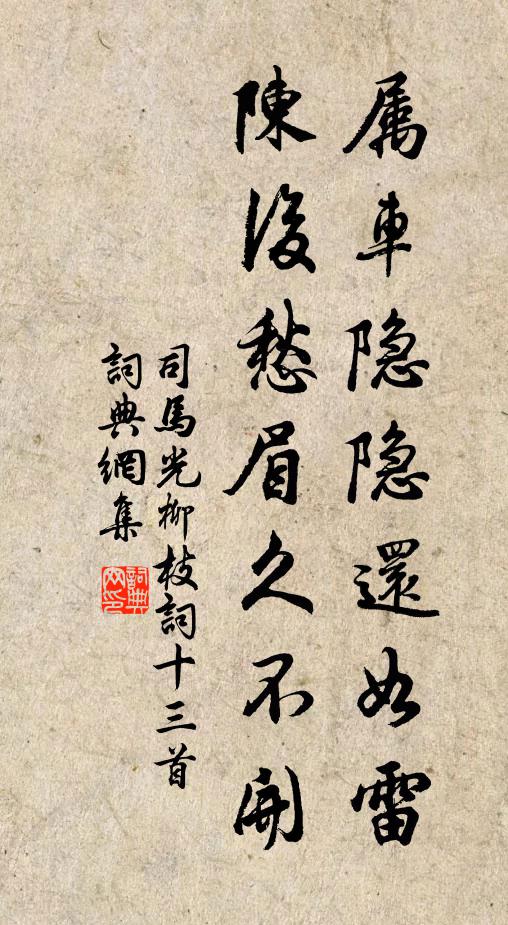 属車隐隐還如雷
陳後愁眉久不開
司馬光柳枝詞十三首
詞典網集
詞典
网印